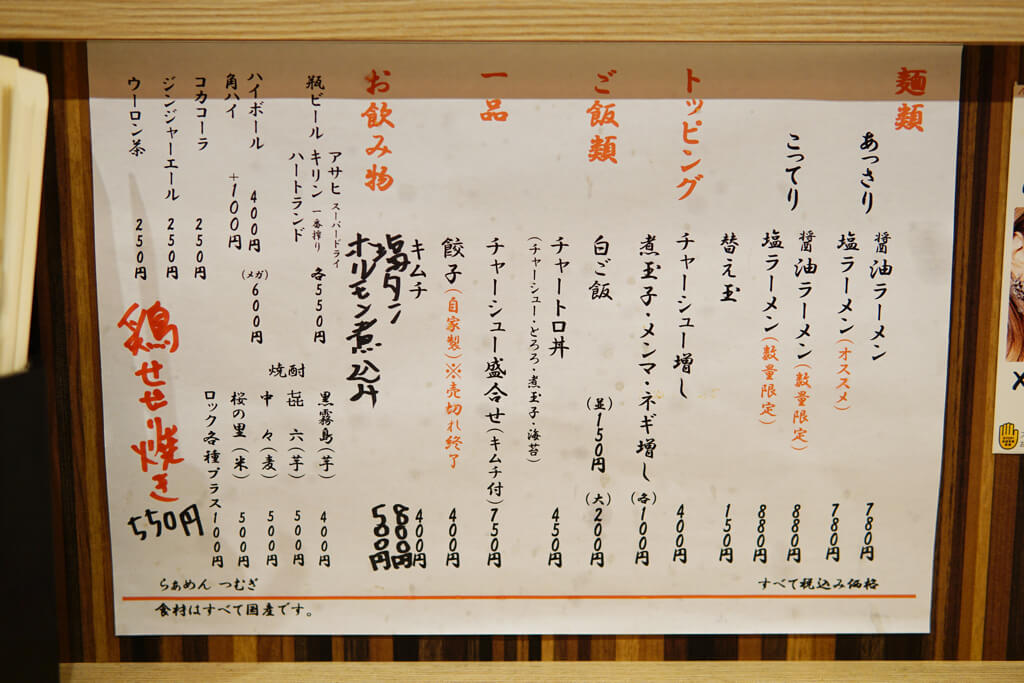 麺類
あっさり
醤油ラーメン 780円
塩ラーメン(オススメ) 780円
こってり
醤油ラーメン(数量限定) 880円
塩ラーメン(数量限定) 880円
替え玉 150円
トッピング
チャーシュー増し 400円
煮玉子・メンマ・ネギ増し(各)100円
ご飯類
白ご飯 (並)150円 (大)200円
チャートロ丼 450円
(チャーシュー・とろろ・煮玉子・海苔)
一品
チャーシュー盛合せ(キムチ付)750円
餃子(自家製)※売切れ終了 400円
キムチ 400円
塩タン 800円
ホルモン煮込み 500円
お飲み物
瓶ビール アサヒ スーパードライ
キリン 一番搾り 各550円
ハートランド
ハイボール 400円 (メガ)600円
角ハイ +100円
コカコーラ 250円
ジンジャーエール 250円
ウーロン茶 250円
焼酎
黒霧島(芋) 400円
㐂六(芋) 500円
中々(麦) 500円
桜の里(米) 500円
ロック各種プラス100円
鶏せせり焼き 550円
すべて税込み価格
らぁめん つむぎ
食材はすべて国産です。